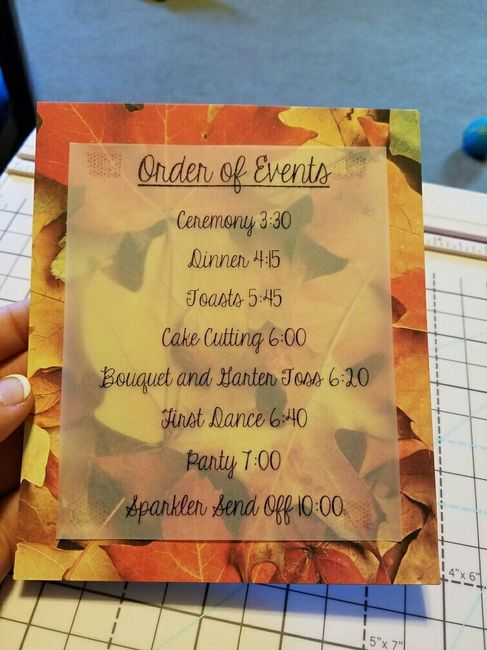 Order of Events
Ceremony 3:30
Dinner 4:15
Toasts 5:45
Cake Cutting 6:00
Bouquet and Garter Toss 6:20
First Dance 6:40
Party 7:00
Sparkler Send Off 10:00
4"x 6"
5"x 7"